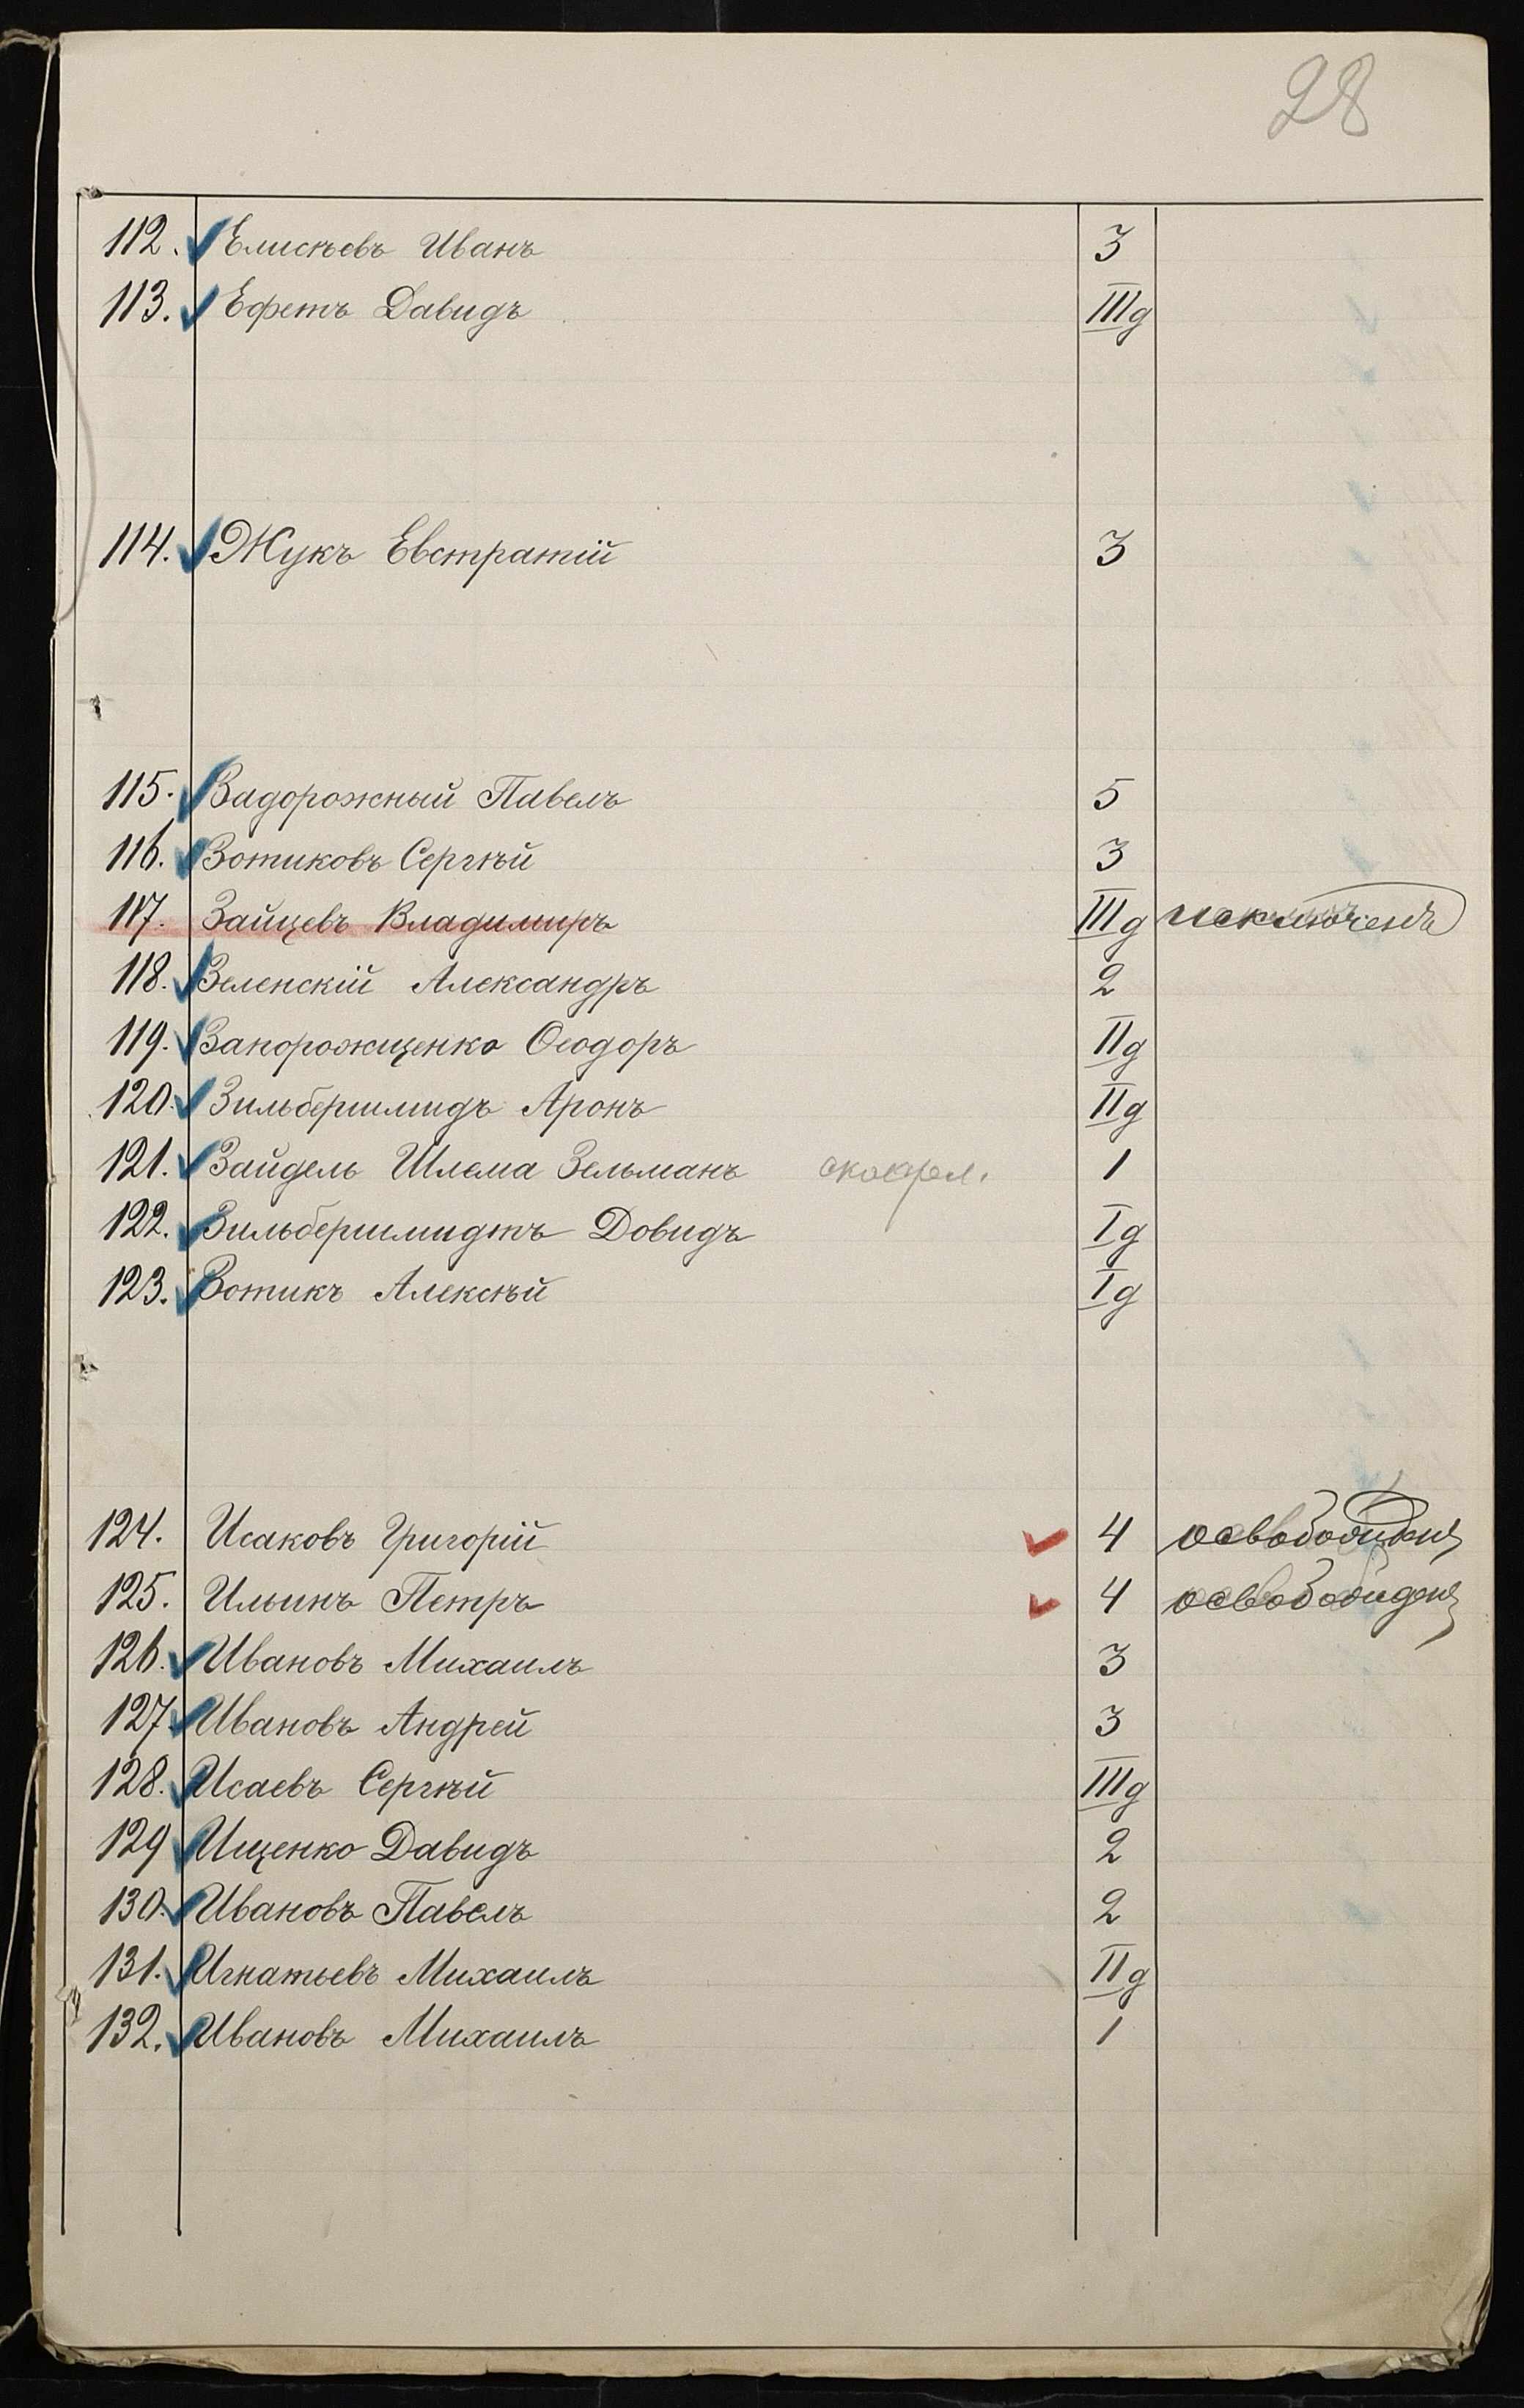 28
112. Елисѣевъ Иванъ 3
113. Ефетъ Давидъ IIIд
114. Жукъ Евстратій 3
115. Задорожный Павелъ 5
116. Зотиковъ Сергѣй 3
117. Зайцевъ Владимиръ IIIд исключенъ
118. Зеленскій Александръ 2
119. Запорожщенко Ѳеодоръ IIд
120. Зильбершмидъ Аронъ IIд
121. Зайдель Шлема Зельманъ 1
122. Зильбершмидтъ Довидъ Iд
123. Зотикъ Алексѣй Iд
124. Исаковъ Григорій 4 освобожденъ
125. Ильинъ Петръ 4 освобожденъ
126. Ивановъ Михаилъ 3
127. Ивановъ Андрей 3
128. Исаевъ Сергѣй IIIд
129 Ищенко Давидъ 2
130. Ивановъ Павелъ 2
131. Игнатьевъ Михаилъ IIд
132. Ивановъ Михаилъ 1